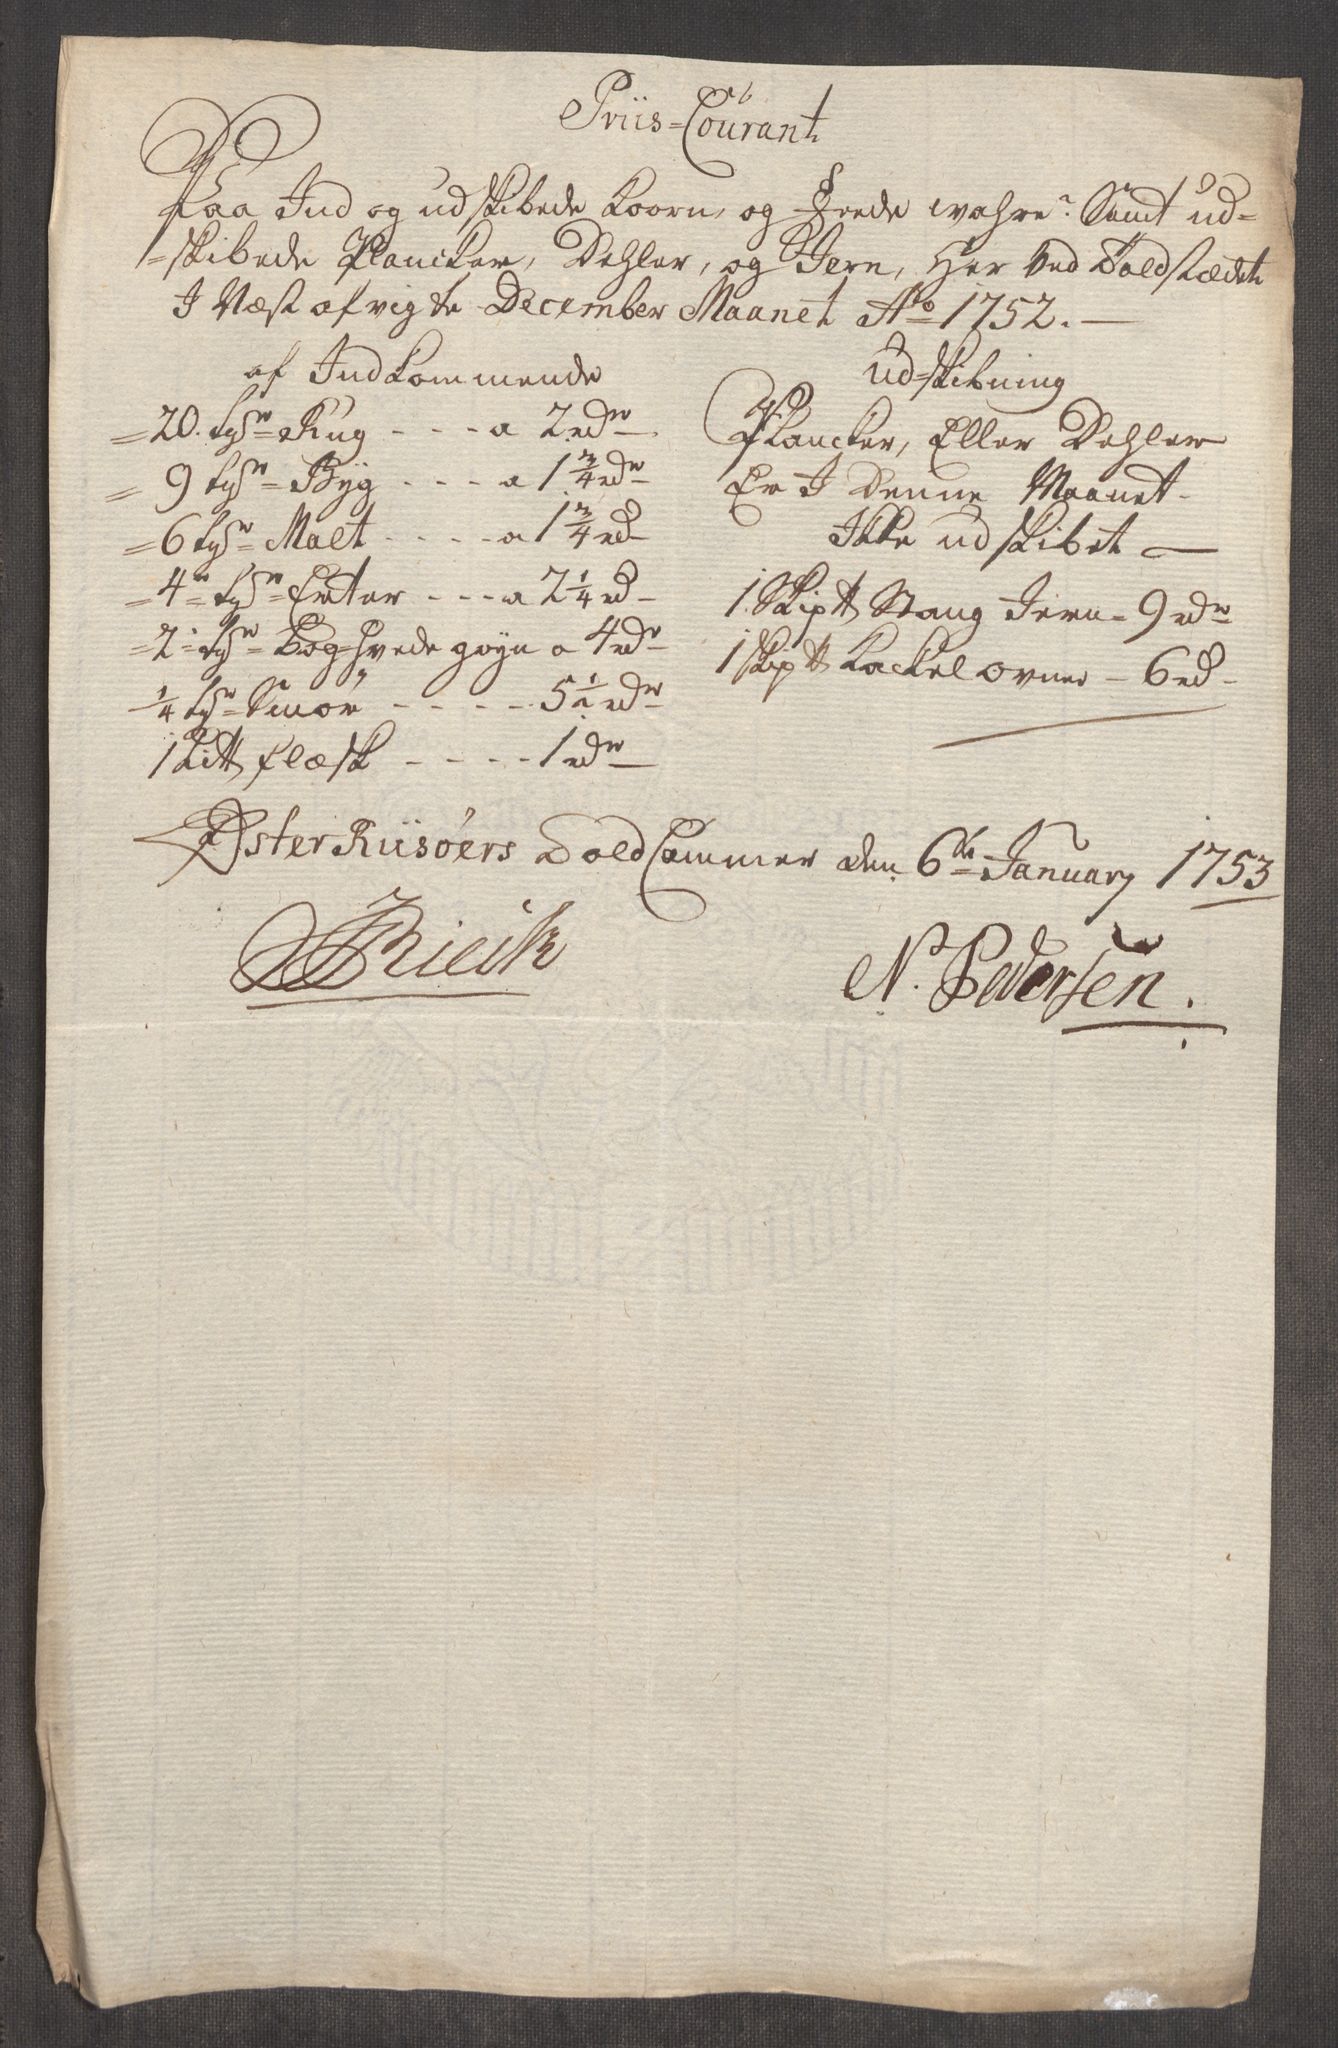 Priis-Courant
Paa Ind og udskibede Koorn, og Fede wahre. Samt ud=
=skibede Plancker, Dehler, og Jern, Her ved Toldstædet
I Næst afvigte December Maanet Ao 1752.
af Indkommende
=20. tdr Rug - - - a 2 rdr
= 9 tdr Byg - - - - a 1 3/4 rdr
=6 tdr Malt - - - - a 1 3/4 rd
=4 tdr Erter - - - a 2 1/4 rd
=2 tdr Boghvede gryn a 4 rdr
1/4 tdr Smør - - - - - 5 1/2 rdr
1 Li℔ flæsk - - - - - 1 rdr
Ud=skibning
Plancker, Eller Dehler
Er I Denne Maanet
Ikke udskibet
1 Skip℔ Stang Jern - 9 rdr
1 Skip℔ Kackelovner - 6 rd
ØsterRiisøers Told Cammer den 6te January 1753
N. Pedersen.